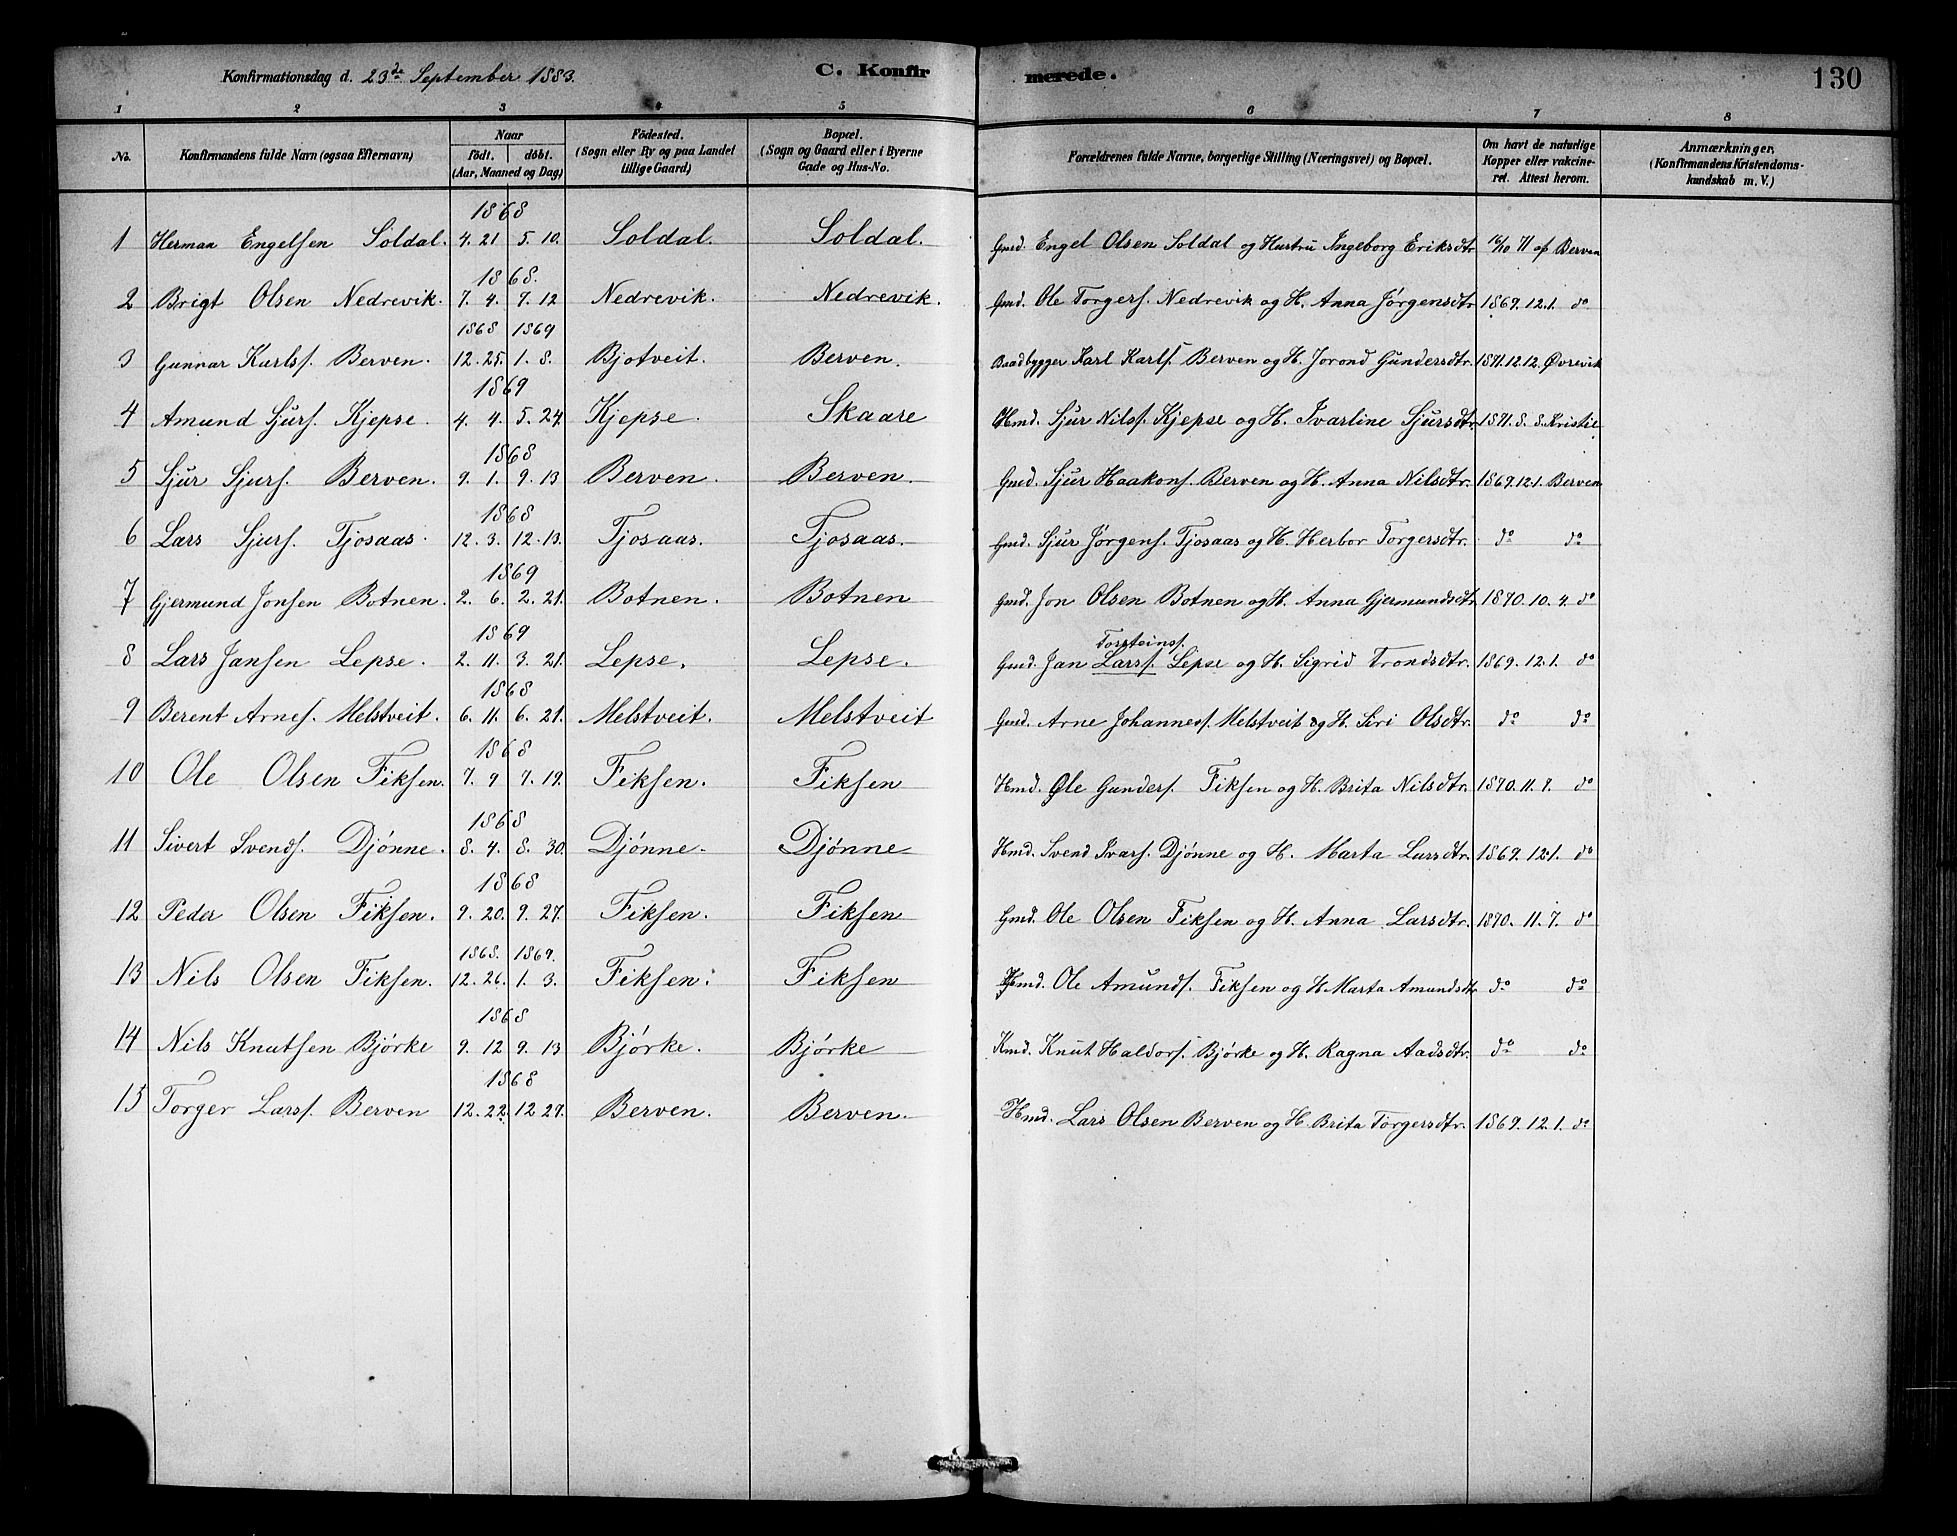 Konfirmationsdag d. 23de September 1883. C. Konfirmerede. 130
1 2 3 4 5 6 7 8
No. Konfirmandens fulde Navn (ogsaa Efternavn) Naar födt. döbt. (Aar, Maaned og Dag) Födested. (Sogn eller By og paa Landet tillige Gaard) Bopæl. (Sogn og Gaard eller i Byerne Gade og Hus-No. Forældrenes fulde Navne, borgerlige Stilling (Næringsvei) og Bopæl. Om havt de naturlige Kopper eller vakcineret. Attest herom. Anmærkninger, (Konfirmandens Kristendomskundskab m. V.)
1868
1 Herman Engelsen Soldal. 4. 21 5. 10. Soldal. Soldal. Gmd. Engel Olsen Soldal og Hustru Ingeborg Eriksdtr 16/10 71 af Berven
1868.
2 Brigt Olsen Nedrevik. 7. 4. 7. 12 Nedrevik. Nedrevik. Gmd. Ole Torgers. Nedrevik og H. Anna Jørgensdtr 1869. 12. 1. do
1868 1869
3 Gunnar Karlss. Berven. 12. 25. 1. 8. Bjotveit. Berven. Baadbygger Karl Karls. Berven og H. Jorond Gundersdtr. 1871. 12. 12. Øvrevik
1869
4 Amund Sjurs. Kjepse. 4. 4. 5. 24. Kjepse. Skaare Hmd. Sjur Nilss. Kjepse og H. Ivarline Sjursdtr. 1871. 8. 8. Kristie
1868
5 Sjur Sjurs. Berven. 9. 1. 9. 13 Berven. Berven. Gmd. Sjur Haakons. Berven og H. Anna Nilsdtr. 1869. 12. 1. Berven
1868
6 Lars Sjurs. Tjosaas. 12. 3. 12. 13. Tjosaas. Tjosaas. Gmd. Sjur Jørgens. Tjosaas og H. Herbor Torgersdtr. do do
1869
7 Gjermund Jonsen Botnen. 2. 6. 2. 21. Botnen. Botnen Gmd. Jon Olsen Botnen og H. Anna Gjermundsdtr 1870. 10. 4. do
1869 Torsteinss.
8 Lars Jansen Lepse. 2. 11. 3. 21. Lepse. Lepse. Gmd. Jan Larss. Lepse og H. Sigrid Trondsdtr. 1869. 12. 1. do
1868
9 Berent Arnes. Melstveit. 6. 11. 6. 21. Melstveit. Melstveit Gmd. Arne Johanness. Melstveit og H. Siri Olsdtr. do do
1868
10 Ole Olsen Fiksen. 7. 9 7. 19. Fiksen. Fiksen Hmd. Ole Gunders. Fiksen og H. Brita Nilsdtr. 1870. 11. 7. do
1868
11 Sivert Svends. Djönne. 8. 4. 8. 30. Djönne. Djönne Hmd. Svend Ivars. Djönne og H. Marta Larsdtr. 1869. 12. 1. do
1868
12 Peder Olsen Fiksen. 9. 20. 9. 27. Fiksen. Fiksen Gmd. Ole Olsen Fiksen og H. Anna Larsdtr. 1870. 11. 7. do
1868. 1869.
13 Nils Olsen Fiksen. 12. 26. 1. 3. Fiksen. Fiksen Hmd. Ole Amunds. Fiksen og H. Marta Amundsdtr do do
1868
14 Nils Knutsen Bjørke 9. 12 9. 13 Bjørke. Bjørke Kmd. Knut Haldors. Bjørke og H. Ragna Aadsdtr. do do
1868
15 Torger Larss. Berven 12. 22. 12 27. Berven. Berven. Hmd. Lars Olsen Berven og H Brita Torgersdtr. 1869. 12. 1. do